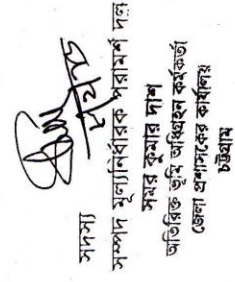 সদস্য
সম্পদ মূল্যনির্ধারক পরামর্শ দল
সমর কুমার দাশ
অতিরিক্ত ভূমি অধিগ্রহন কর্মকর্তা
জেলা প্রশাসকের কার্যালয়
চট্টগ্রাম